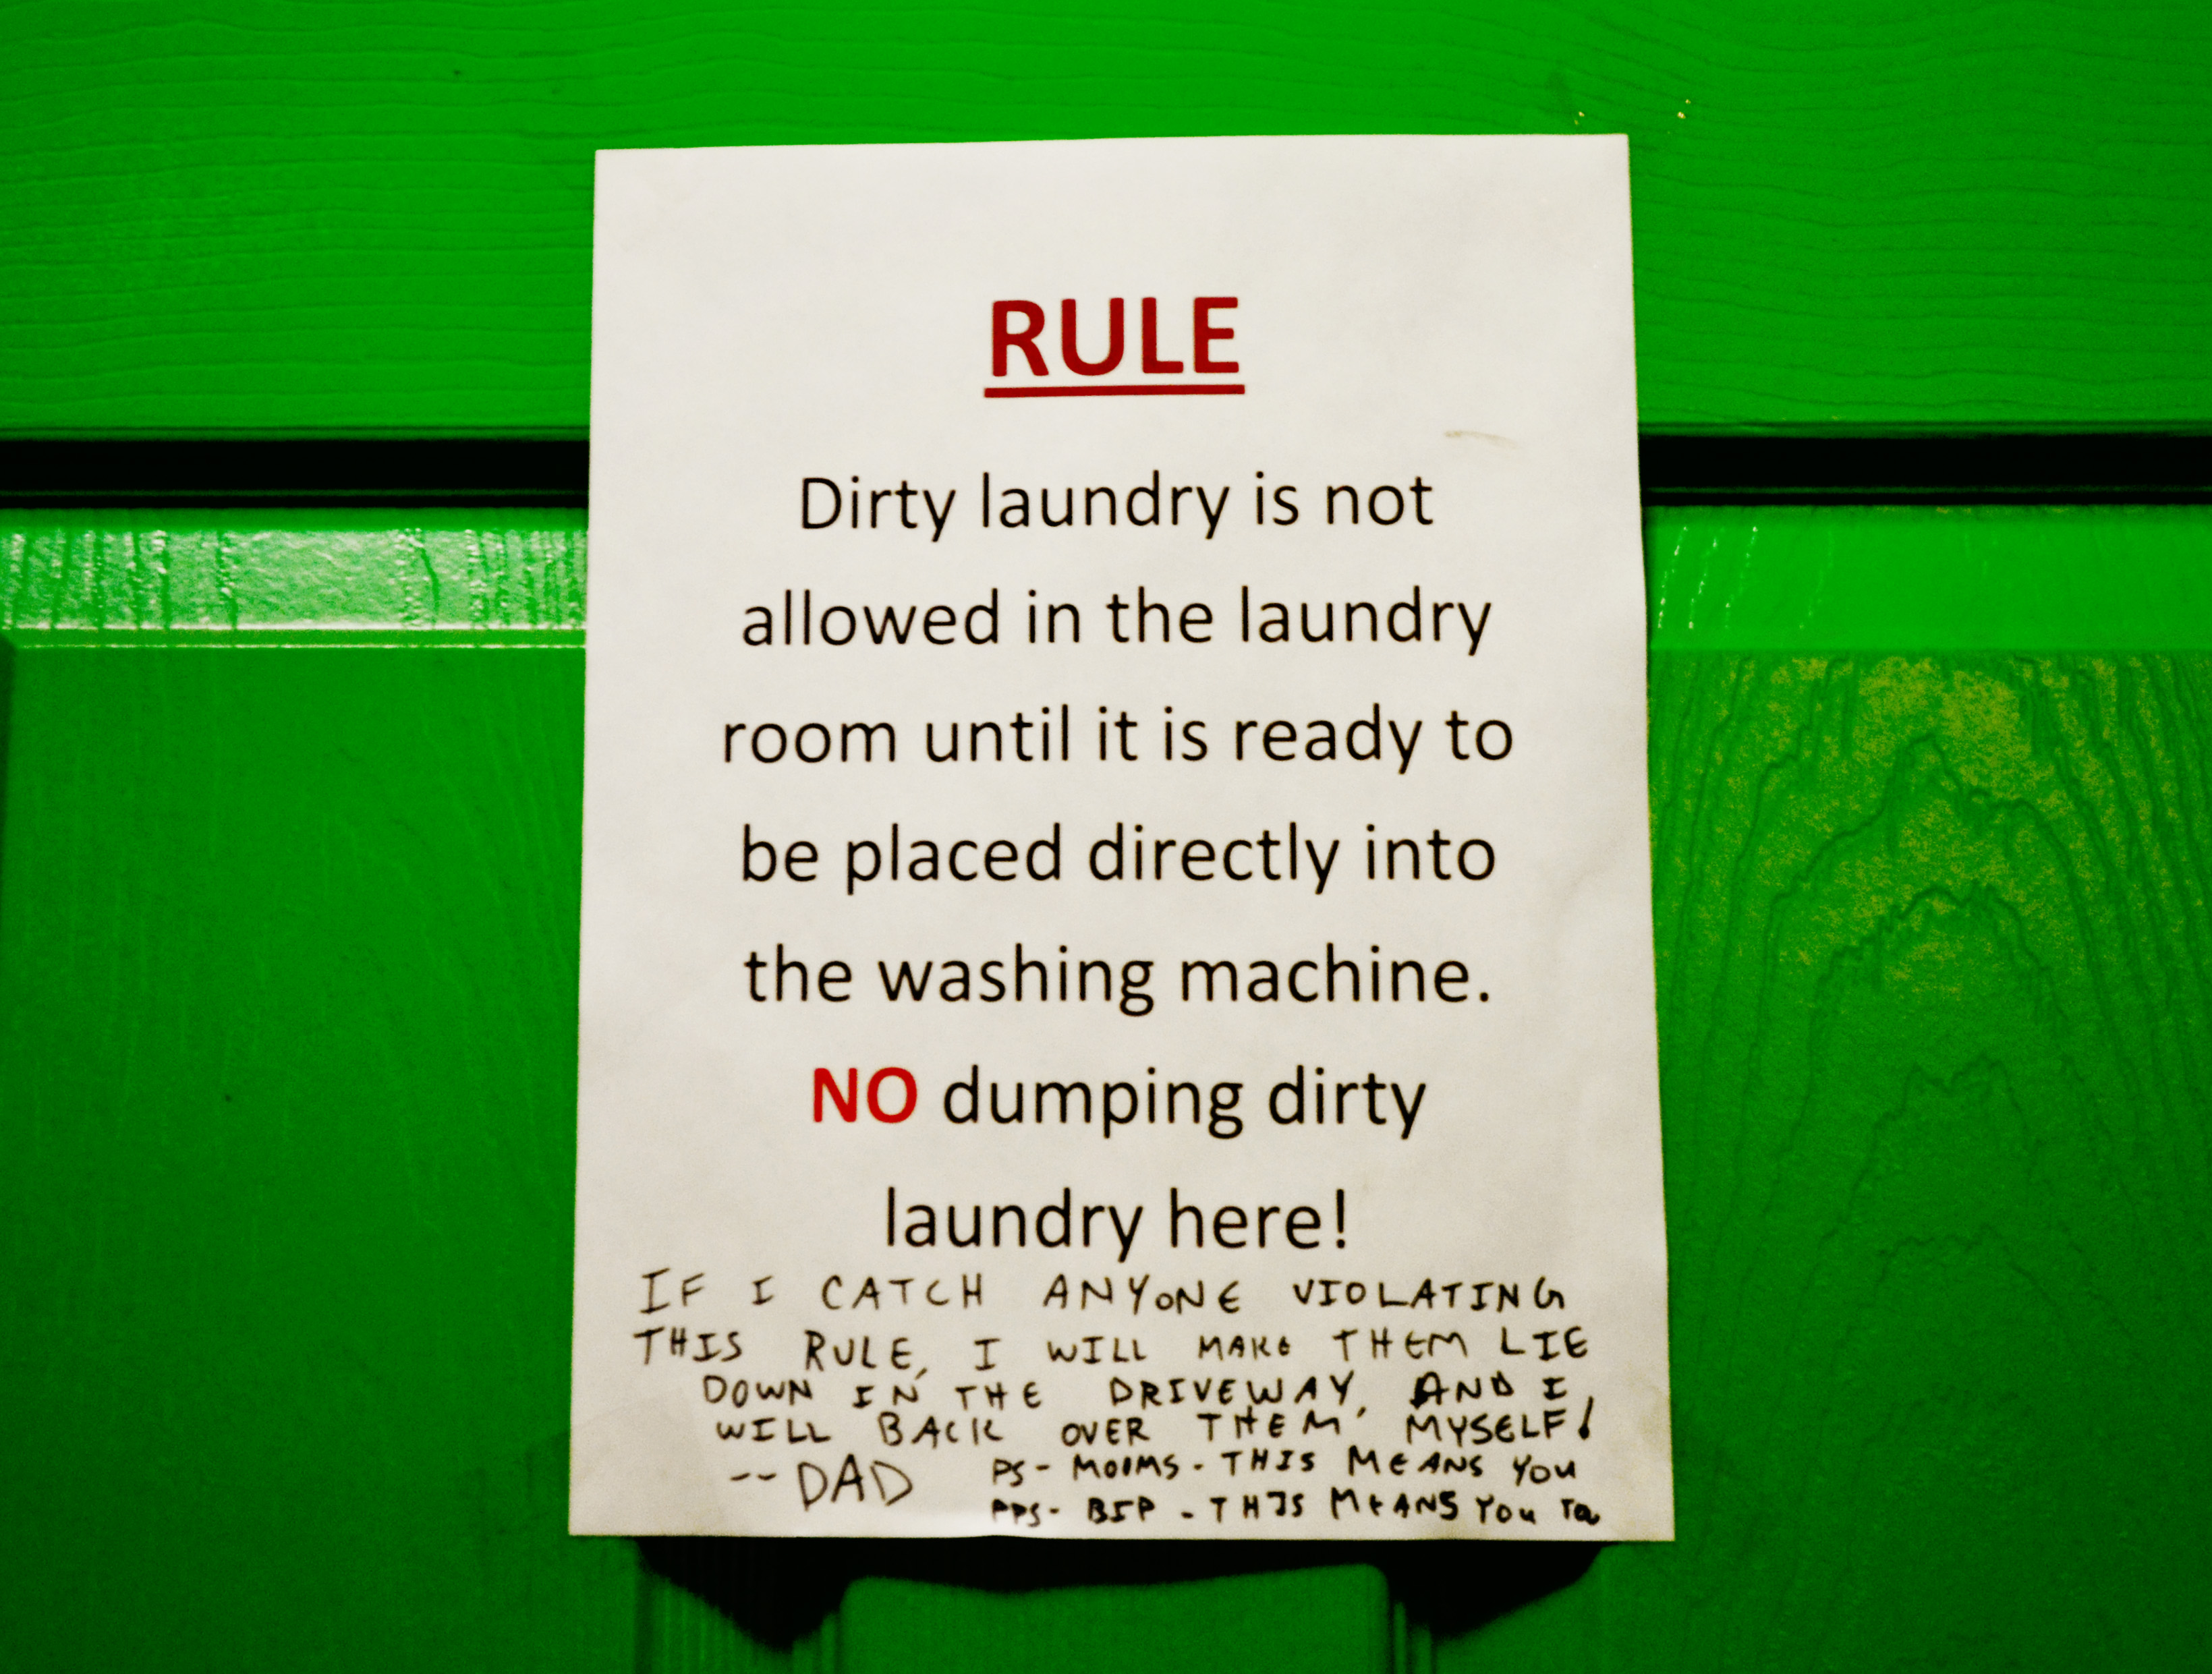 RULE
Dirty laundry is not
allowed in the laundry
room until it is ready to
be placed directly into
the washing machine.
NO dumping dirty
laundry here!
IF I CATCH ANYONE VIOLATING
THIS RULE, I WILL MAKE THEM LIE
DOWN IN THE DRIVEWAY, AND I
WILL BACK OVER THEM MYSELF!
-- DAD
PS - MOIMS - THIS MEANS YOU
PPS - BIP - THIS MEANS YOU TO